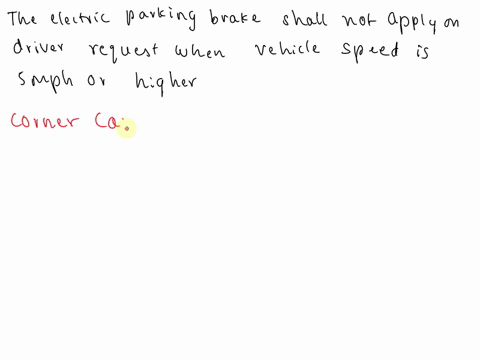 The electric parking brake shall not apply on
driver request when vehicle speed is
5mph or higher
corner Ca